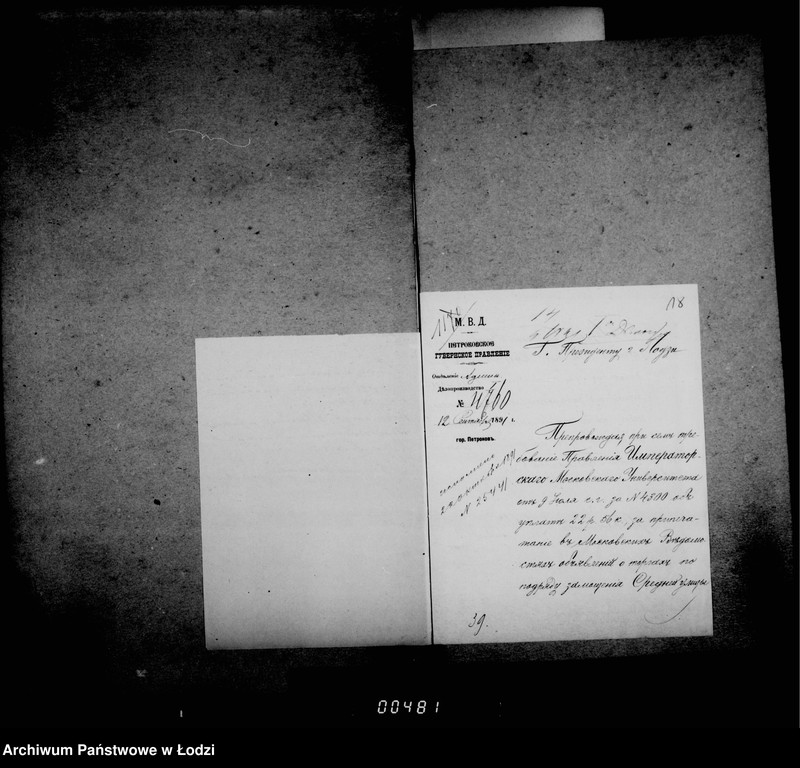 18
М. В. Д.
ПЕТРОКОВСКОЕ
ГУБЕРНСКОЕ ПРАВЛЕНІЕ
Отдѣленіе
Дѣлопроизводство
№ 4760
12 Сентября 1891 г.
гор. Петроковъ.
Г. Президенту г. Лодзи
Препровождая при семъ тре-
бованіе Правленія Император-
скаго Московскаго Университета
отъ 9 Іюля с.г. за № 4500 объ
уплатѣ 22 р. 86 к. за припеча-
таніе въ Московскихъ Вѣдомо-
стяхъ объявленія о торгахъ по
подряду замощенія Средней улицы
39.
00481
Archiwum Państwowe w Łodzi